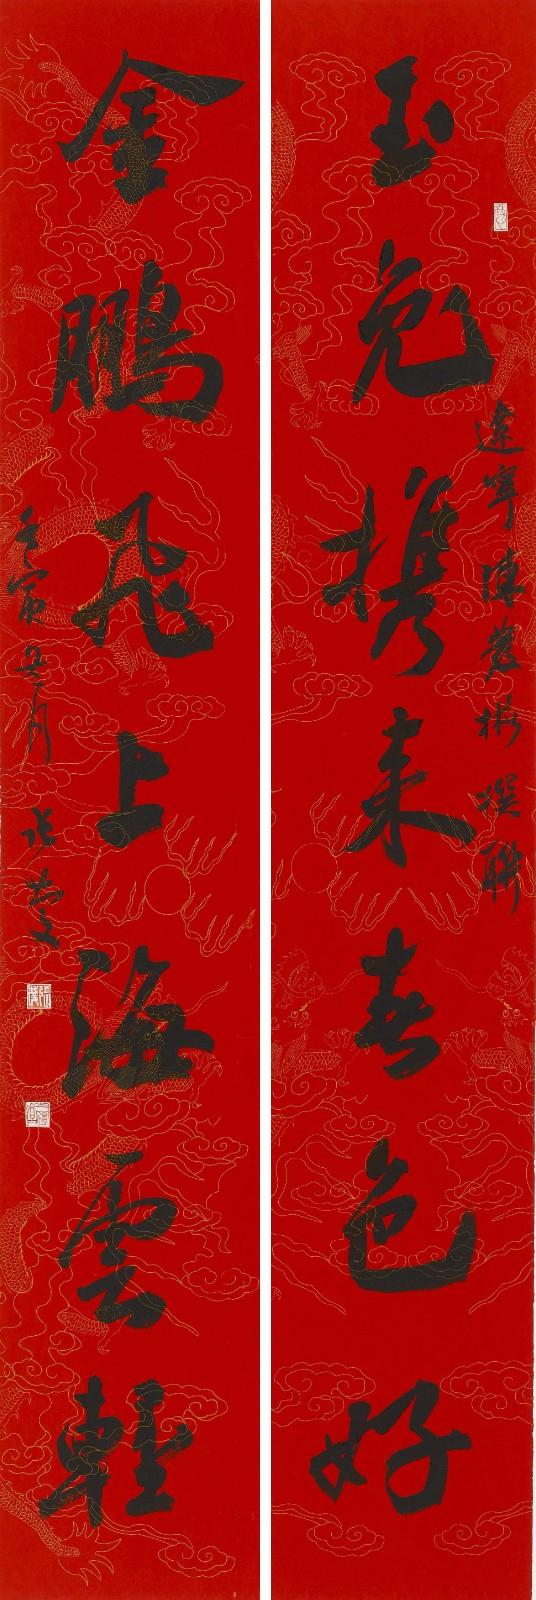 玉兔攜来春色好
遼寧陳慶彬撰聯
金鵬飛上海雲輕
壬寅 月 張